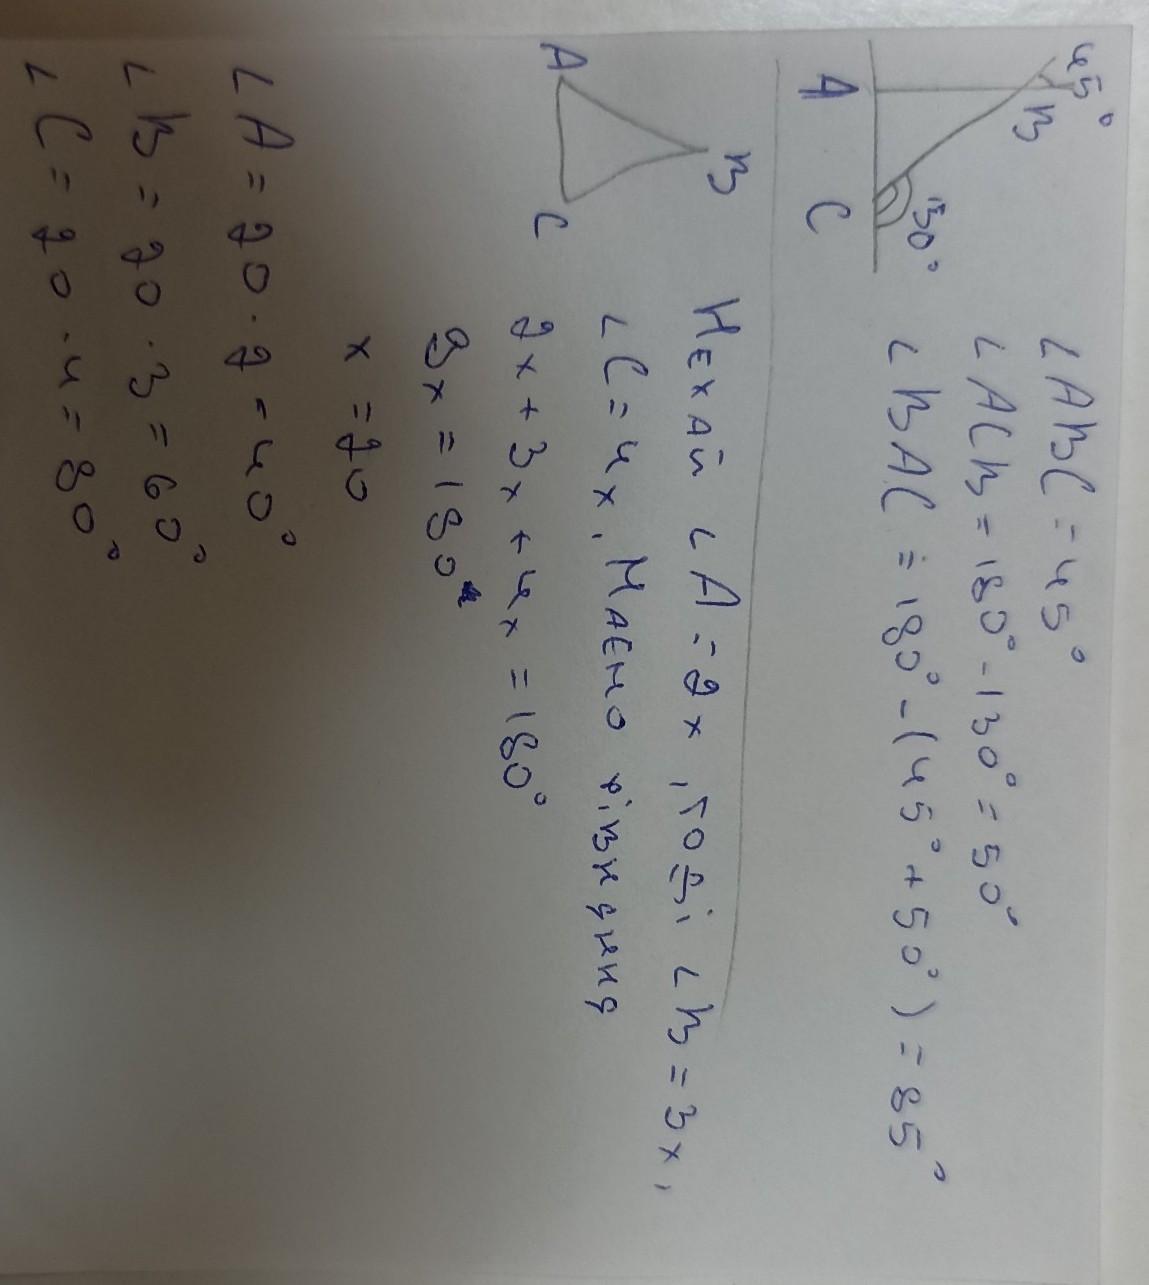 45°
B
A
C
130°
∠ABC = 45°
∠ACB = 180° - 130° = 50°
∠BAC = 180° - (45° + 50°) = 85°
A
B
C
Нехай ∠A = 2x, тоді ∠B = 3x,
∠C = 4x. Маємо рівняння
2x + 3x + 4x = 180°
9x = 180°
x = 20
∠A = 20 · 2 = 40°
∠B = 20 · 3 = 60°
∠C = 20 · 4 = 80°